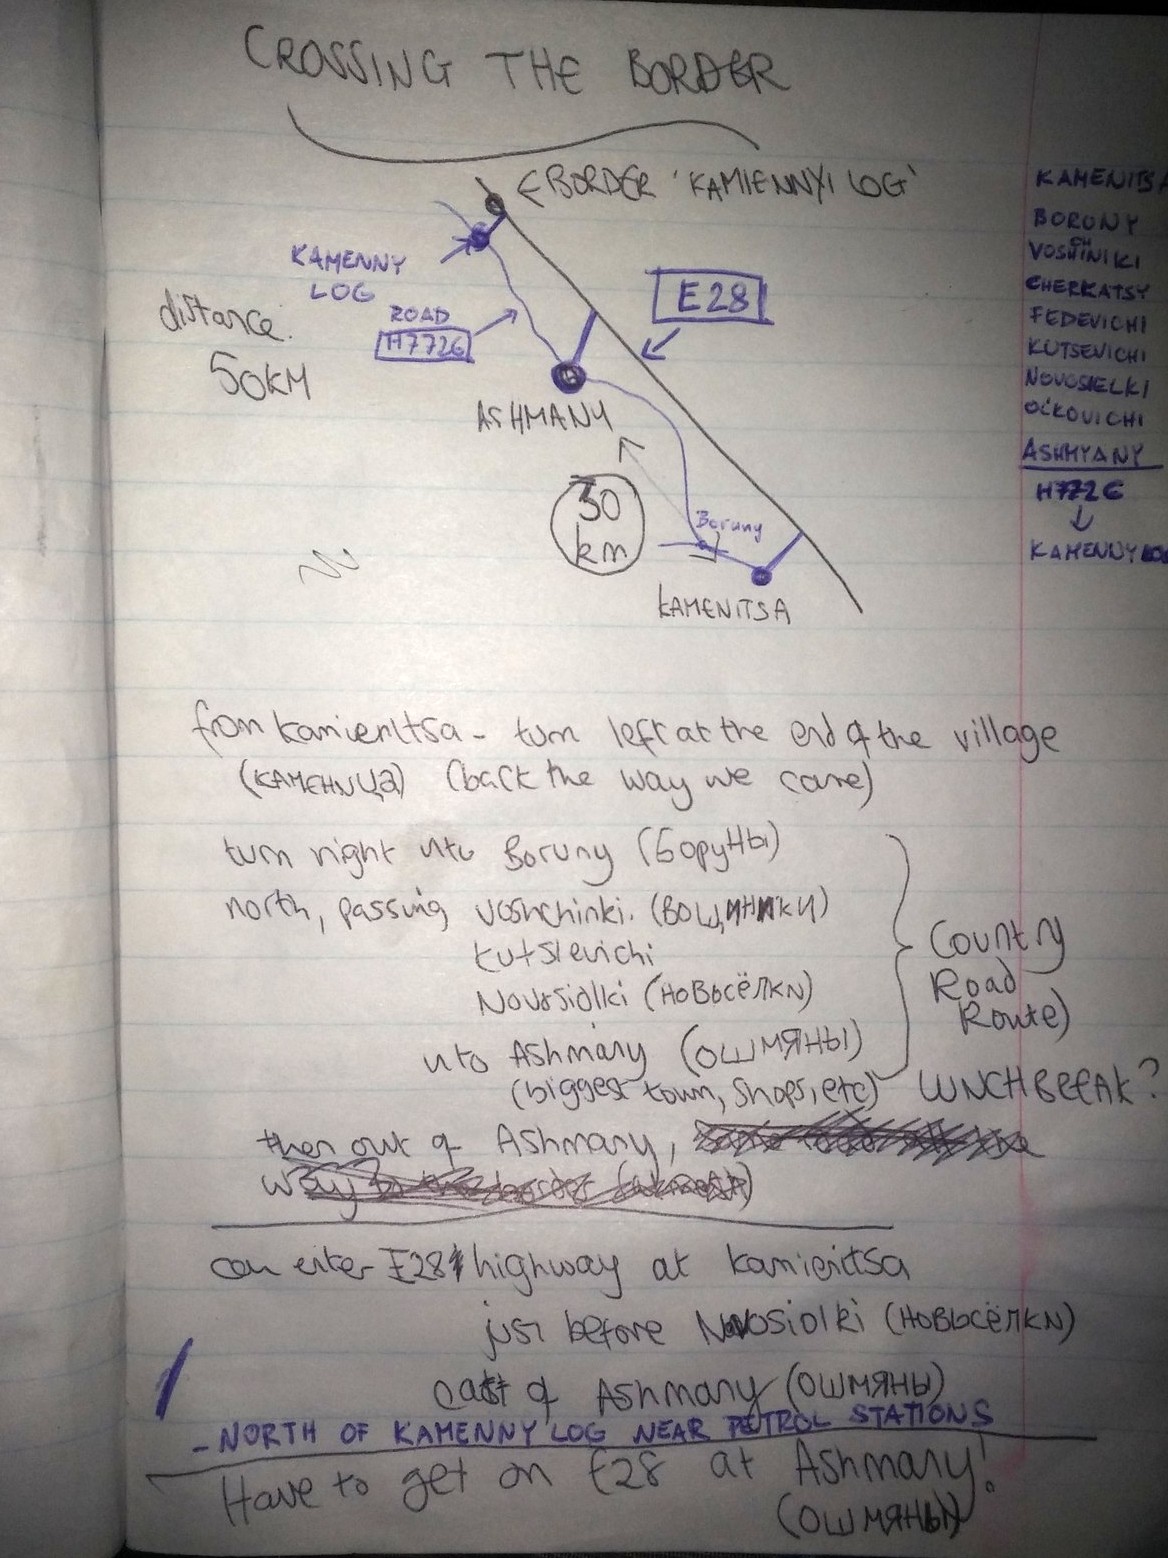 CROSSING THE BORDER
← BORDER 'KAMIENNYI LOG'
KAMENNY
LOG
E28
ROAD
H7726
distance.
50KM
ASHMANY
30
km
Boruny
KAMENITSA
KAMENITSA
BORUNY
VOSHINIKI
CHERKATSY
FEDEVICHI
KUTSEVICHI
NOVOSIELKI
OCKOVICHI
ASHMYANY
H7726
↓
KAMENNY LOG
from kamienitsa - turn left at the end of the village
(КАМЕНИЦА) (back the way we came)
turn right into Boruny (БоруНЫ)
north, passing Voshchinki. (ВОЩИНИКИ)
Kutsievichi
Novosiolki (НОВЫСЁЛКИ)
into Ashmany (ОШМЯНЫ)
(biggest town, shops, etc)
Country
Road
Route)
LUNCHBREAK?
then out of Ashmany,
way
can enter E28 highway at kamienitsa
just before Novosiolki (НОВЫСЁЛКИ)
east of Ashmany (ОШМЯНЫ)
- NORTH OF KAMENNY LOG NEAR PETROL STATIONS
Have to get on E28 at Ashmany!
(ОШМЯНЫ)